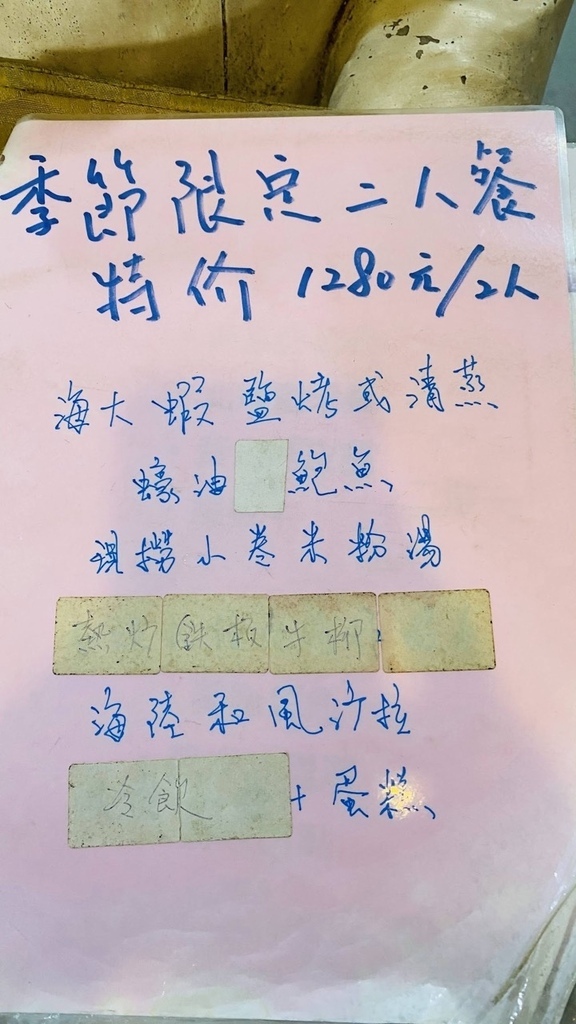 季節限定二人餐
特价 1280元/2人
海大蝦鹽烤或清蒸
蠔油鮑魚
現撈小卷米粉湯
熱炒鉄板牛柳
海陸和風沙拉
冷飲 + 蛋糕